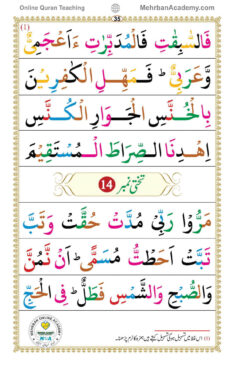 Online Quran Teaching MehrbanAcademy.com
35
(1)
فَالسّٰبِقٰتِ فَالْمُدَبِّرٰتِ ءَاَعْجَمِیٌّ
وَّعَرَبِیٌّ ط فَمَهِّلِ الْكٰفِرِیْنَ
بِالْخُنَّسِ الْجَوَارِ الْكُنَّسِ
اِهْدِنَا الصِّرَاطَ الْمُسْتَقِیْمَ
تختی نمبر 14
مَرُّوْا رَبِّیْ مُدَّتْ حُقَّتْ وَتَبَّ
تَبَّتْ اَحَطْتُّ مُسَمًّی ط اَنْ نَّمُنَّ
وَالصُّبْحِ وَالشَّمْسِ فَطَلٌّ ط فِی الْحَجِّ
MEHRBAN ONLINE ACADEMY